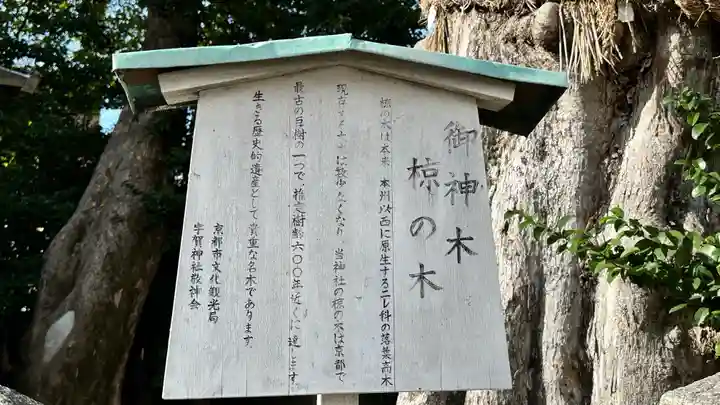 御神木
椋の木
椋の木は本来 本州以西に原生するニレ科の落葉高木
現存 に数少なくなり 当神社の椋の木は京都で
最古の巨樹の一つで、推定樹齢六〇〇年近くに達します
生きる歴史的遺産として貴重な名木であります
京都市文化観光局
宇賀神社敬神会